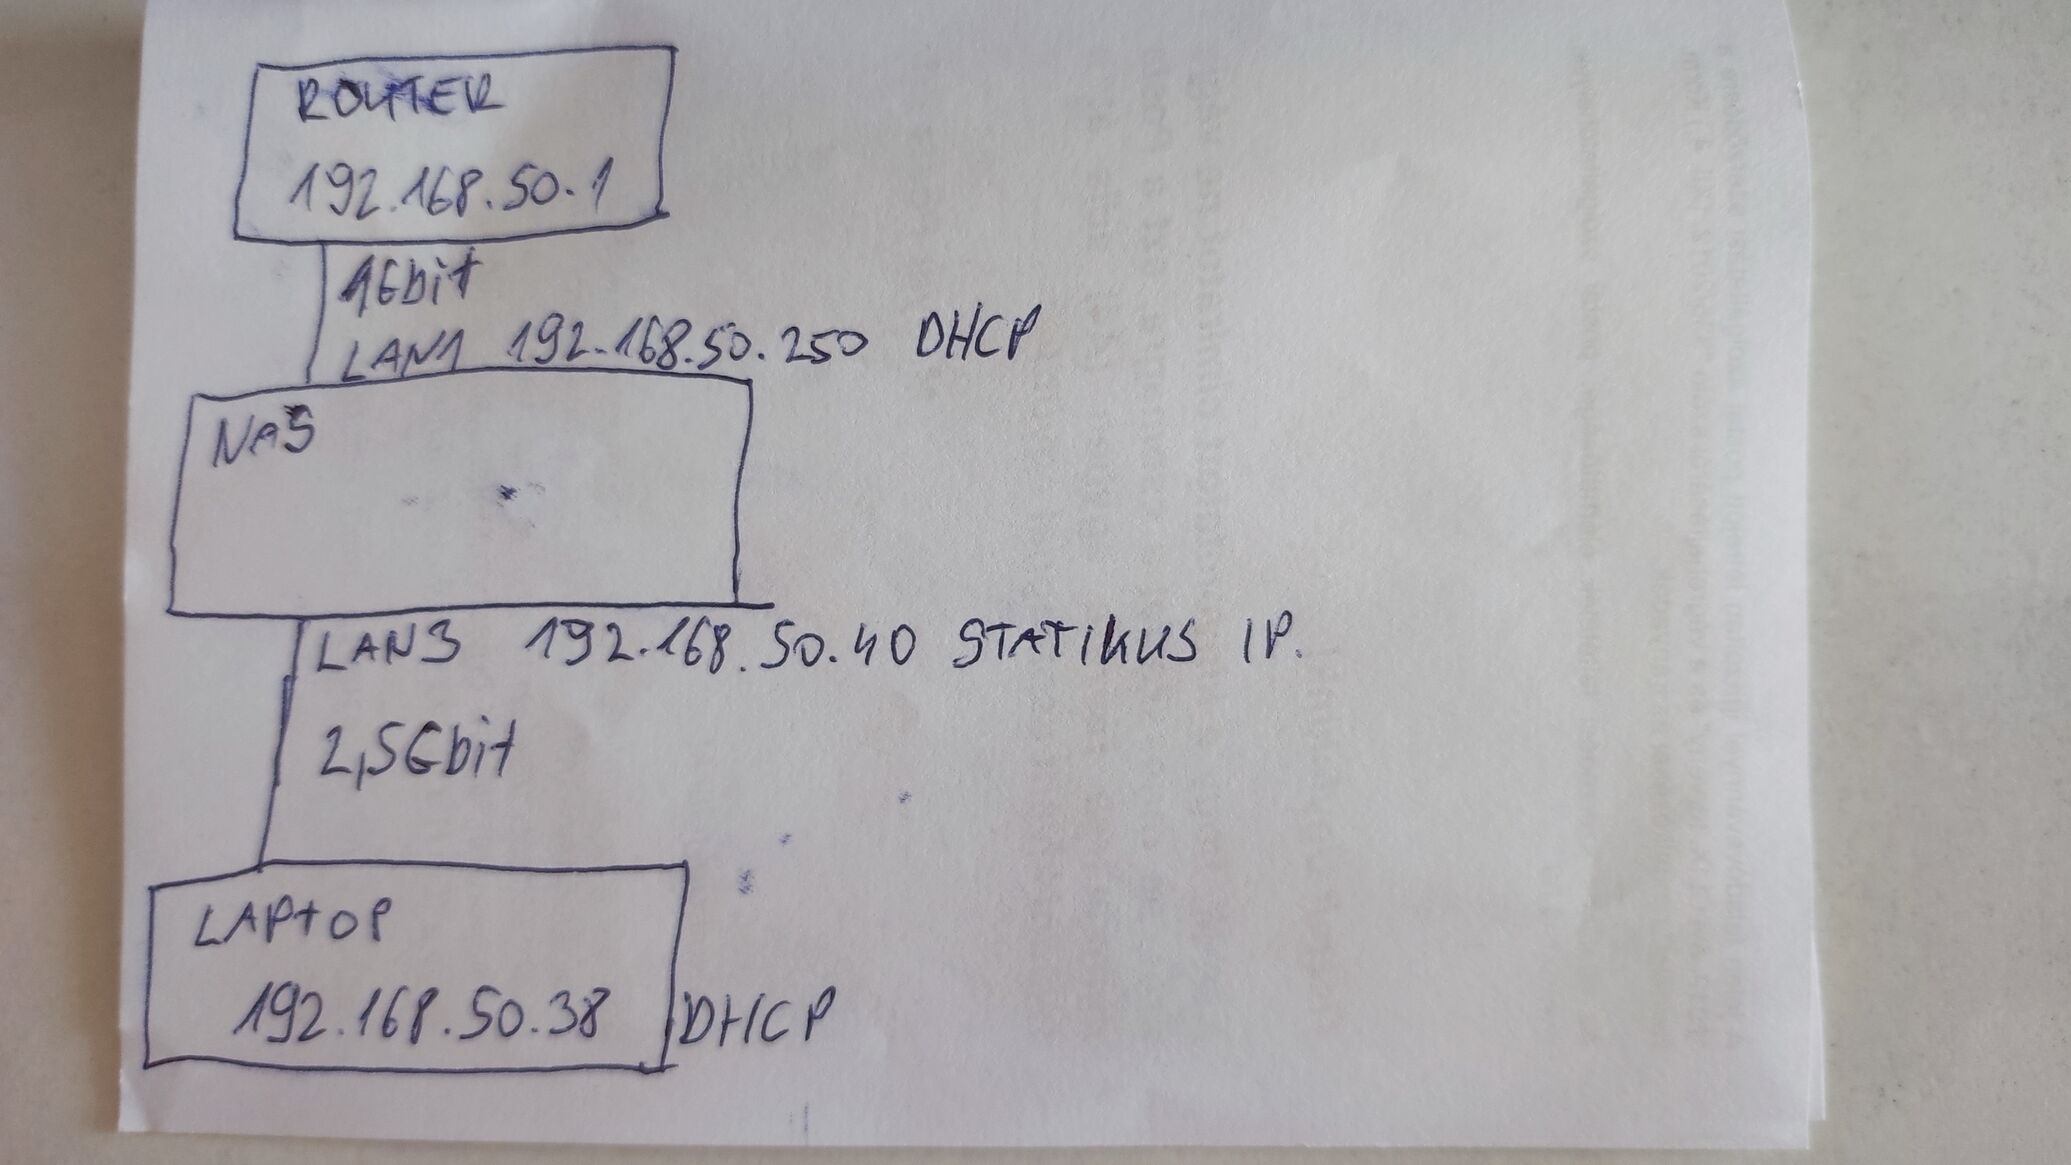 ROUTER
192.168.50.1
1Gbit
LAN1 192.168.50.250 DHCP
NAS
LAN3 192.168.50.40 STATIKUS IP.
2,5Gbit
LAPTOP
192.168.50.38 DHCP